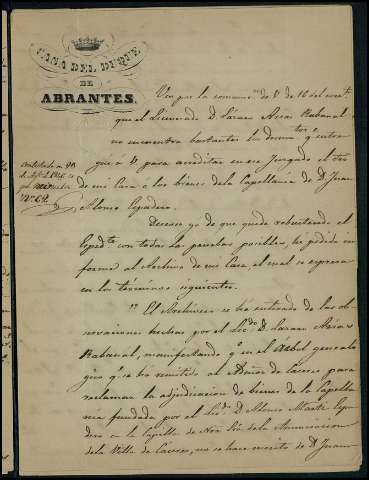 CASA DEL DUQUE
DE
ABRANTES.
Veo por la comunic.on de V. de 16 del corr.te
que el Licenciado D. Lazaro Arias Rabanal
no encuentra bastantes los docum.tos q.e entre
gué a V. para acreditar en ese Juzgado el
de mi Casa á los bienes de la Capellanía de D. Juan
Alonso Espadero.
Contestado en
Deseoso yo de que quede robustecido el
Esped.te con todas las pruebas posibles, he pedido in
forme al Archivo de mi Casa, el cual se espresa
en los términos siguientes.
"El Archivero se ha enterado de las ob
servaciones hechas por el Lic.do D. Lazaro Arias
Rabanal, manifestando q.e en el Arbol genealó
gico q.e se ha remitido al Adm.or de Cáceres para
reclamar la adjudicacion de bienes de la Capella
nía fundada por el Lic.do D. Alonso Espa
dero en la Capilla de Ntra Sra de la Anunciacion
de la Villa de Cáceres, no se hace mérito de D. Juan